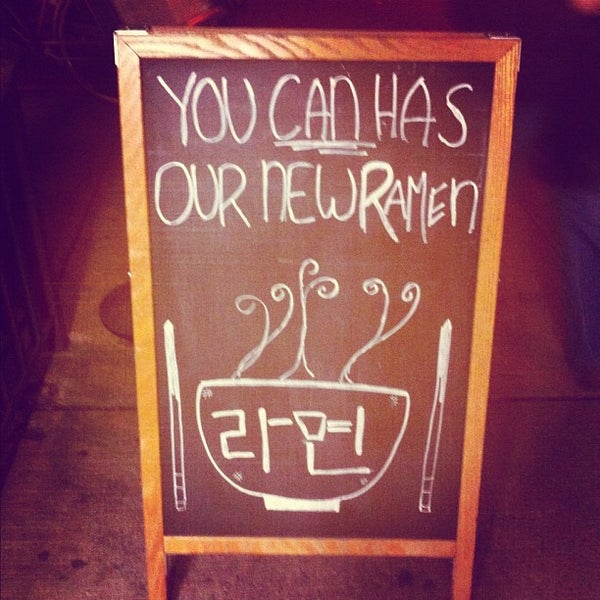 YOU CAN HAS
OUR NEW RAMEN
라면